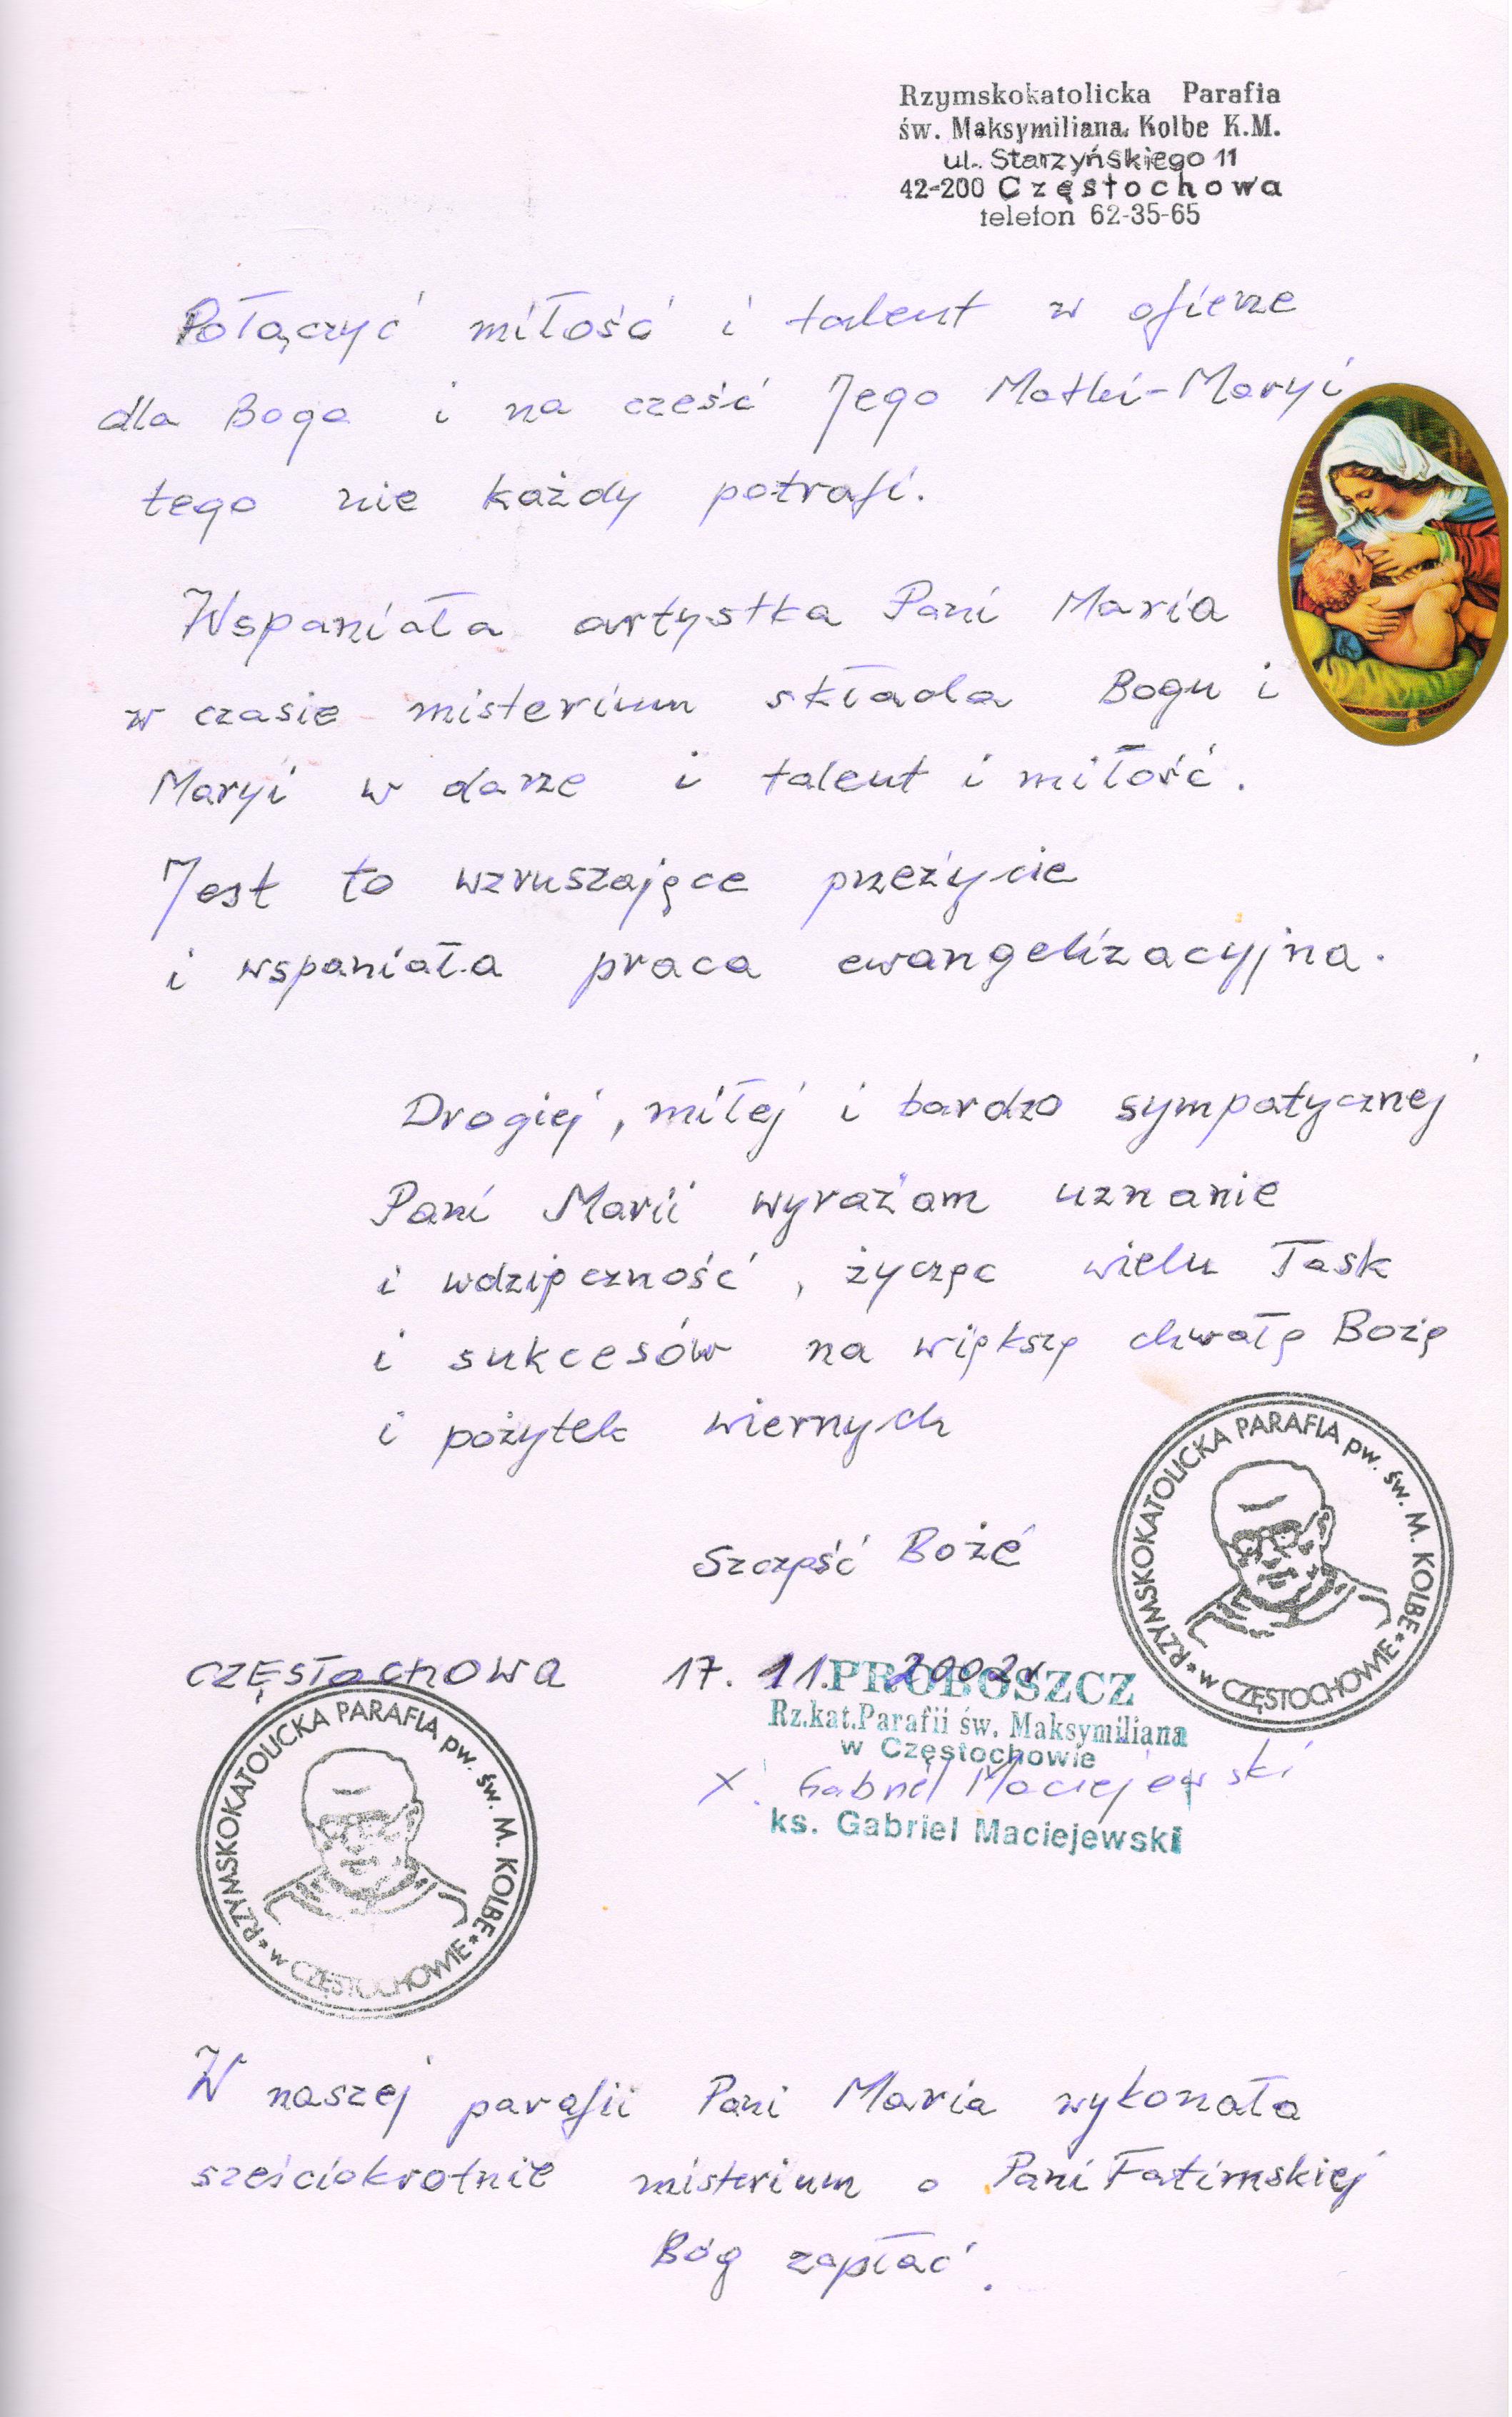 Rzymskokatolicka Parafia
św. Maksymiliana Kolbe K.M.
ul. Starzyńskiego 11
42-200 Częstochowa
telefon 62-35-65
Połączyć miłość i talent w ofierze
dla Boga i na cześć Jego Matki-Maryi
tego nie każdy potrafi.
Wspaniała artystka Pani Maria
w czasie misterium składa Bogu i
Maryi w darze i talent i miłość.
Jest to wzruszające przeżycie
i wspaniała praca ewangelizacyjna.
Drogiej, miłej i bardzo sympatycznej
Pani Marii wyrażam uznanie
i wdzięczność, życząc wielu łask
i sukcesów na większą chwałę Bożą
i pożytek wiernych
Szczęść Boże
RZYMSKOKATOLICKA PARAFIA pw. św. M. KOLBE
* w CZĘSTOCHOWIE *
CZĘSTOCHOWA 17. 11. 2002r
PROBOSZCZ
Rz.kat.Parafii św. Maksymiliana
w Częstochowie
X. Gabriel Maciejewski
ks. Gabriel Maciejewski
RZYMSKOKATOLICKA PARAFIA pw. św. M. KOLBE
* w CZĘSTOCHOWIE *
W naszej parafii Pani Maria wykonała
sześciokrotnie misterium o Pani Fatimskiej
Bóg zapłać.